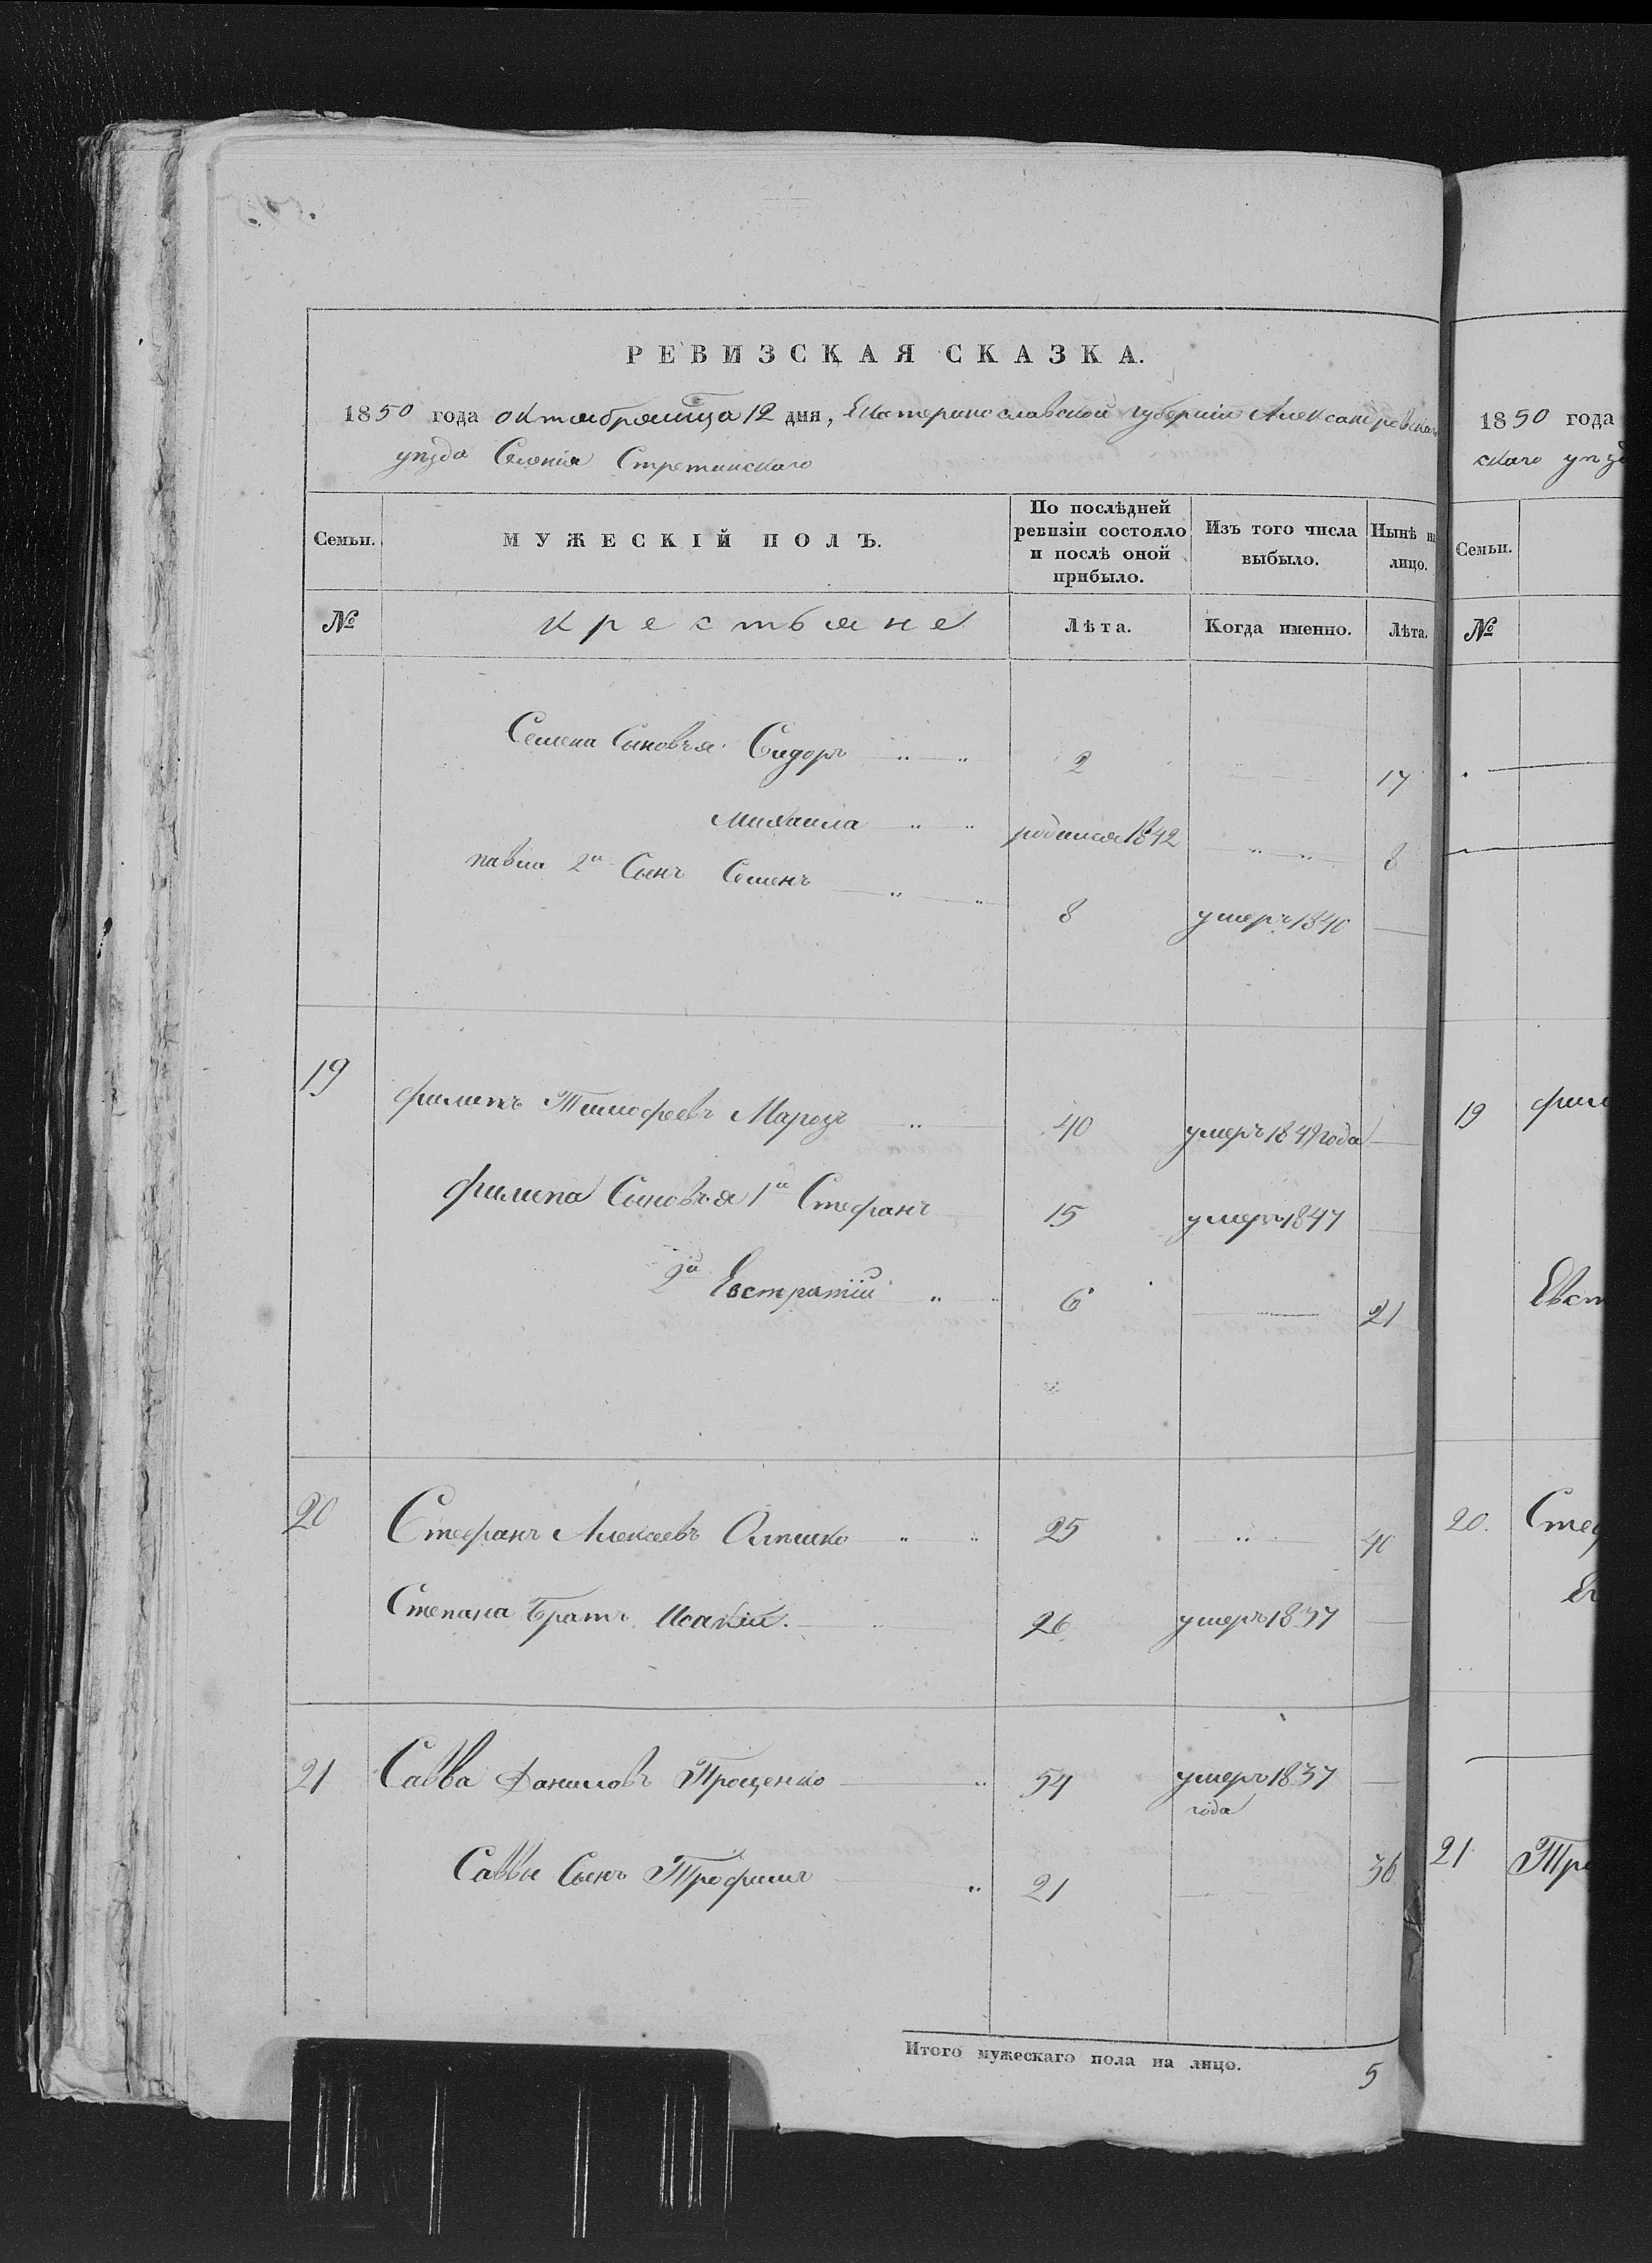 РЕВИЗСКАЯ СКАЗКА.
1850 года октября месяца 12 дня, Екатеринославской губерніи Александровскаго
уѣзда Селенія Стретинскаго
Семьи. МУЖЕСКІЙ ПОЛЪ. По послѣдней ревизіи состояло и послѣ оной прибыло. Изъ того числа выбыло. Нынѣ на лицо.
№ крестьяне Лѣта. Когда именно. Лѣта.
Семена Сыновъя Сидоръ 2 17
Михаила родился 1842 8
павла 2й Сынъ Семенъ 8 умеръ 1840
19 филипъ Тимофеевъ Марозъ 40 умеръ 1849 года
филипа Сыновъя 1й Стефанъ 15 умеръ 1847
2й Евстратій 6 21
20 Стефанъ Алексеевъ 25 40
Степана Братъ Исакій. 26 умеръ 1837
21 Савва Даниловъ Проценко 54 умеръ 1837
года
Саввы Сынъ Трофимъ 21 36
Итого мужескаго пола на лицо. 5
1850 года
скаго уѣзд
Семьи.
№
19 фил
Евст
20. Стеф
21 Тро